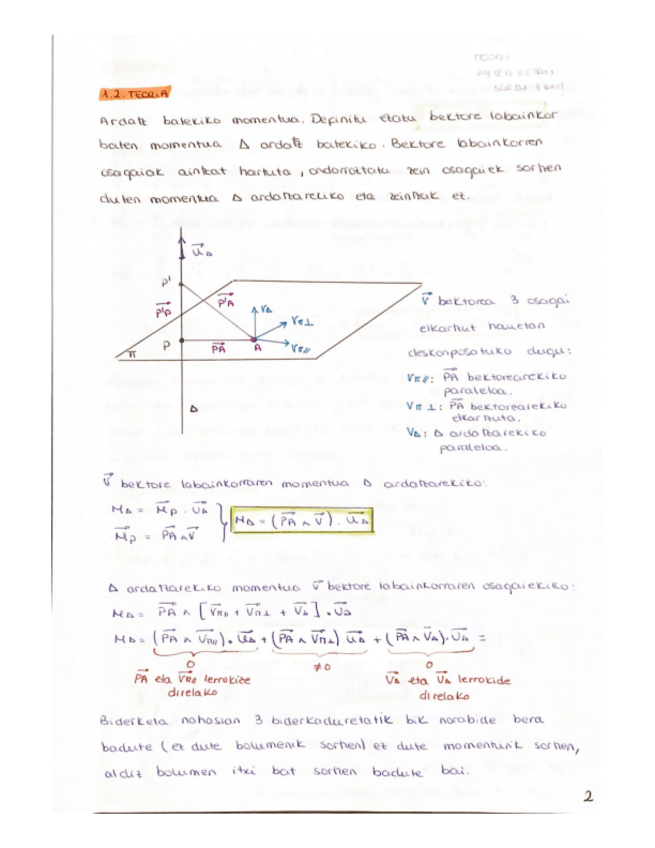 1.2. TEORIA
Ardatz batekiko momentua. Definitu ezazu bektore labainkor
baten momentua Δ ardatz batekiko. Bektore labainkorren
osagaiak aintzat hartuta, ondorioztatu zein osagaiek sortzen
duten momentua Δ ardatzarekiko eta zeintzuk ez.
u⃗Δ
P'
P'P⃗
P'A⃗
VΔ
Vπ⊥
P
PA⃗
A
Vπ//
π
Δ
V⃗ bektorea 3 osagai
elkarzut hauetan
deskonposatuko dugu:
Vπ//: PA⃗ bektorearekiko
paraleloa.
Vπ⊥: PA⃗ bektorearekiko
elkarzuta.
VΔ: Δ ardatzarekiko
paraleloa.
V⃗ bektore labainkorraren momentua Δ ardatzarekiko:
MΔ = M⃗p · U⃗Δ
M⃗p = PA⃗ ∧ V⃗
MΔ = (PA⃗ ∧ V⃗) · U⃗Δ
Δ ardatzarekiko momentua V⃗ bektore labainkorraren osagaiekiko:
MΔ = PA⃗ ∧ [V⃗π// + V⃗π⊥ + V⃗Δ] · U⃗Δ
MΔ = (PA⃗ ∧ V⃗π//) · U⃗Δ + (PA⃗ ∧ V⃗π⊥) U⃗Δ + (PA⃗ ∧ V⃗Δ) · U⃗Δ =
0 ≠0 0
PA⃗ eta V⃗π// lerrokide
direlako
V⃗Δ eta U⃗Δ lerrokide
direlako
Biderketa nahasian 3 biderkaduretatik bik norabide bera
badute (ez dute bolumenik sortzen) ez dute momenturik sortzen,
aldiz bolumen itxi bat sortzen badute bai.
2